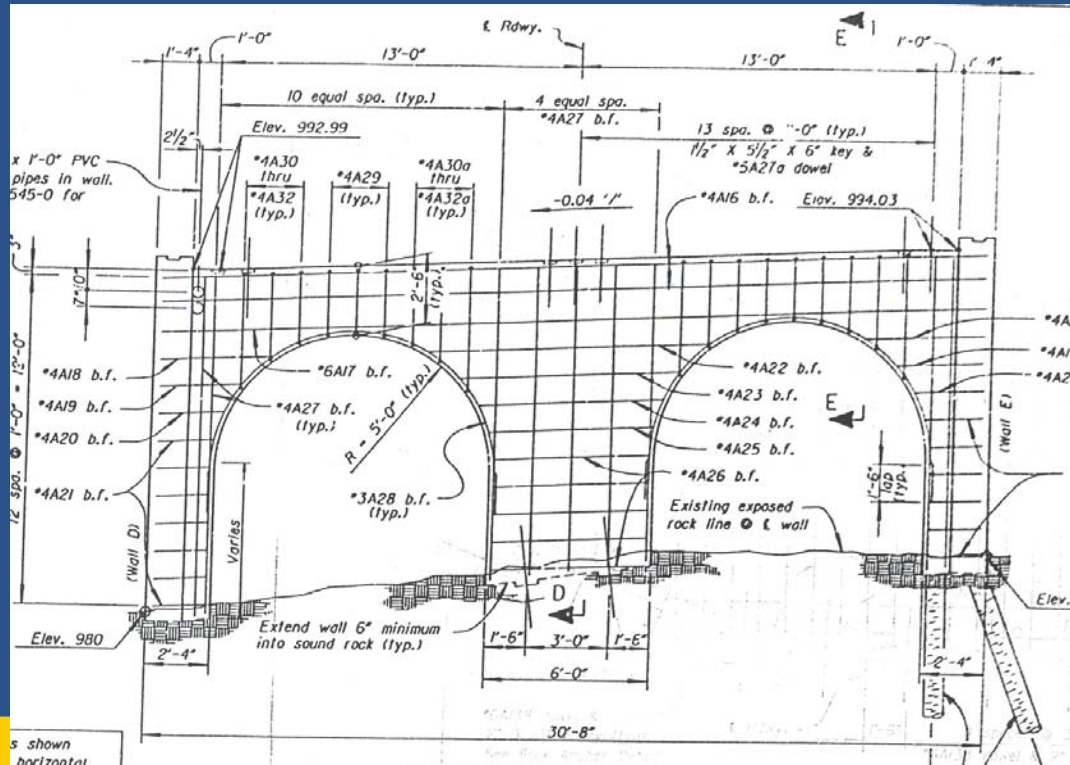 ℄ Rdwy.
E
1'-0"
1'-4"
13'-0"
13'-0"
1'-0"
10 equal spa. (typ.)
4 equal spa.
*4A27 b.f.
13 spa. @
(typ.)
1½" X 5½" X 6" key &
*5A27a dowel
2½"
Elev. 992.99
x 1'-0" PVC
pipes in wall.
545-0 for
*4A30
thru
*4A32
(typ.)
*4A29
(typ.)
*4A30a
thru
*4A32a
(typ.)
-0.04 '/'
*4A16 b.f.
Elev. 994.03
3"
2'-6"
(typ.)
12 spa. @ 1'-0" = 12'-0"
*4A18 b.f.
*4A19 b.f.
*4A20 b.f.
*4A21 b.f.
*6A17 b.f.
*4A27 b.f.
(typ.)
R = 5'-0" (typ.)
*3A28 b.f.
(typ.)
*4A22 b.f.
*4A23 b.f.
*4A24 b.f.
*4A25 b.f.
*4A26 b.f.
E
(Wall E)
1'-6"
lap
(typ.)
Existing exposed
rock line @ ℄ wall
(Wall D)
Varies
D
Elev. 980
Extend wall 6" minimum
into sound rock (typ.)
Elev.
2'-4"
1'-6"
3'-0"
1'-6"
2'-4"
6'-0"
30'-8"
s shown
horizontal